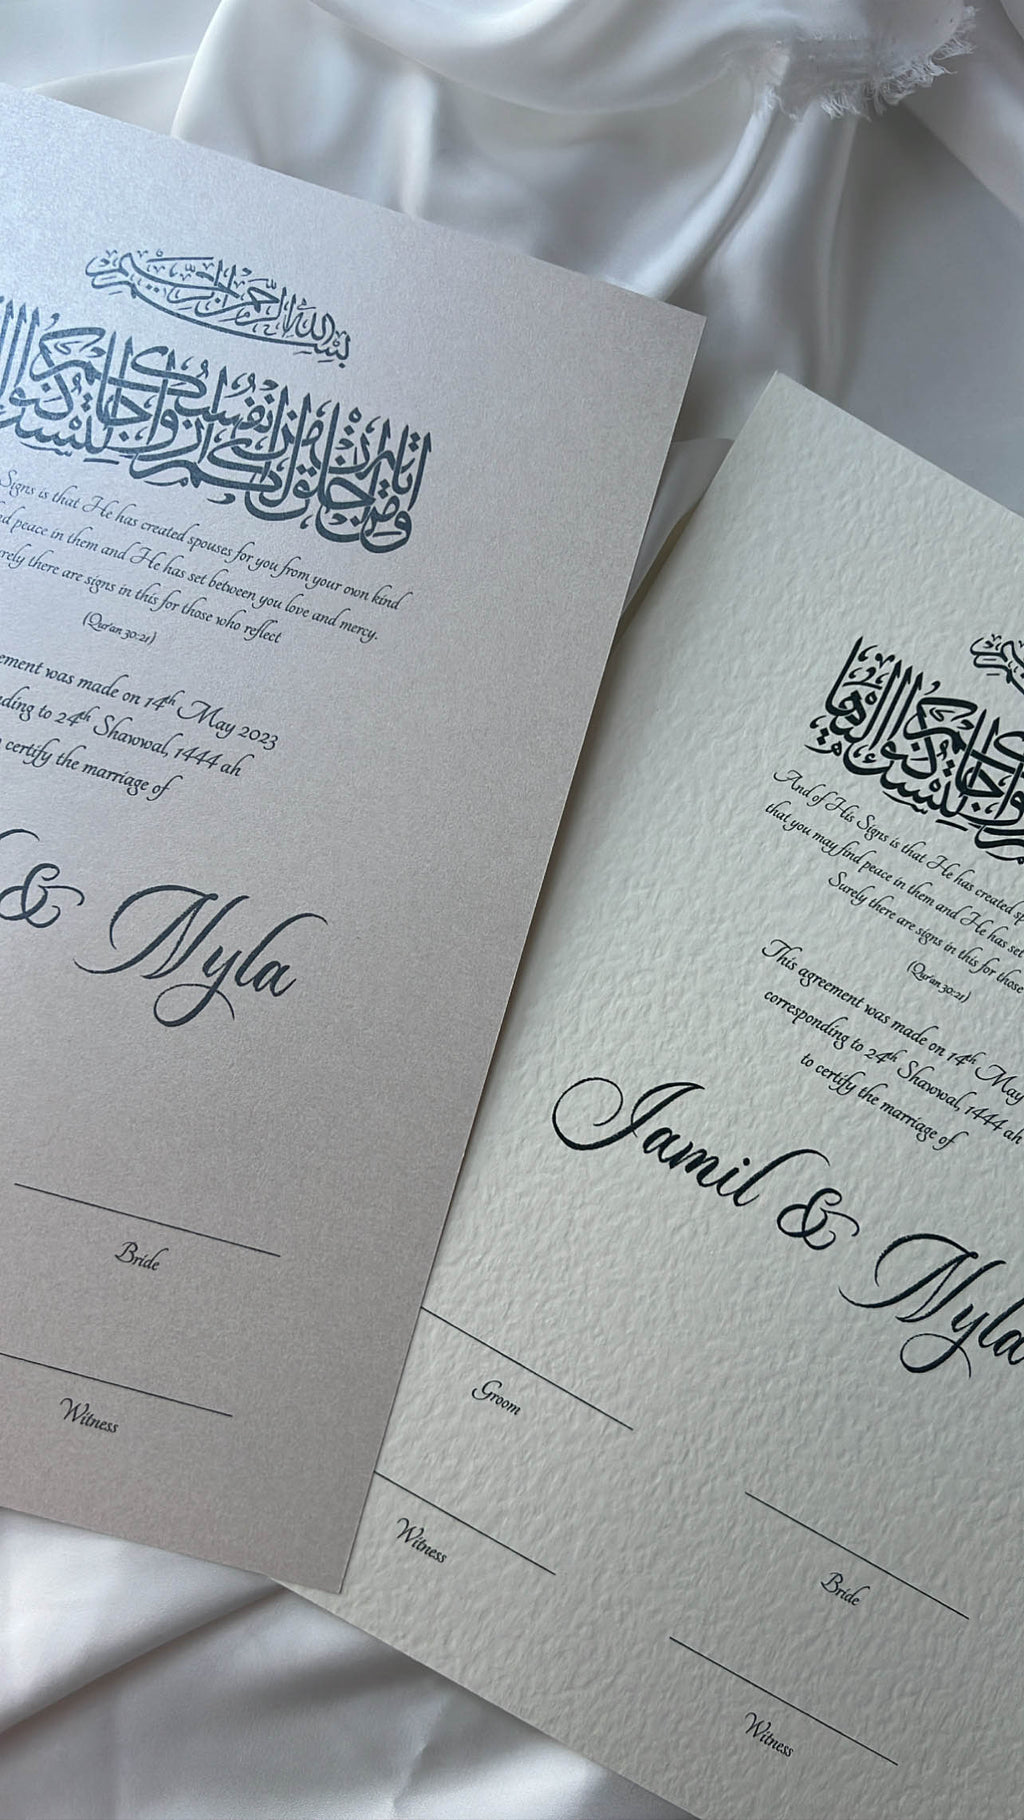 بسم الله الرحمن الرحيم
ومن آياته أن خلق لكم من أنفسكم أزواجا لتسكنوا
Signs is that He has created spouses for you from your own kind
peace in them and He has set between you love and mercy.
there are signs in this for those who reflect
(Qur'an 30:21)
was made on 14th May 2023
to 24th Shawwal, 1444 ah
certify the marriage of
& Nyla
Bride
Witness
ومن آياته أن خلق لكم من أنفسكم أزواجا لتسكنوا إليها
And of His Signs is that He has created
that you may find peace in them and He has set
Surely there are signs in this for those
(Qur'an 30:21)
This agreement was made on 14th May
corresponding to 24th Shawwal, 1444 ah
to certify the marriage of
Jamil & Nyla
Groom
Bride
Witness
Witness